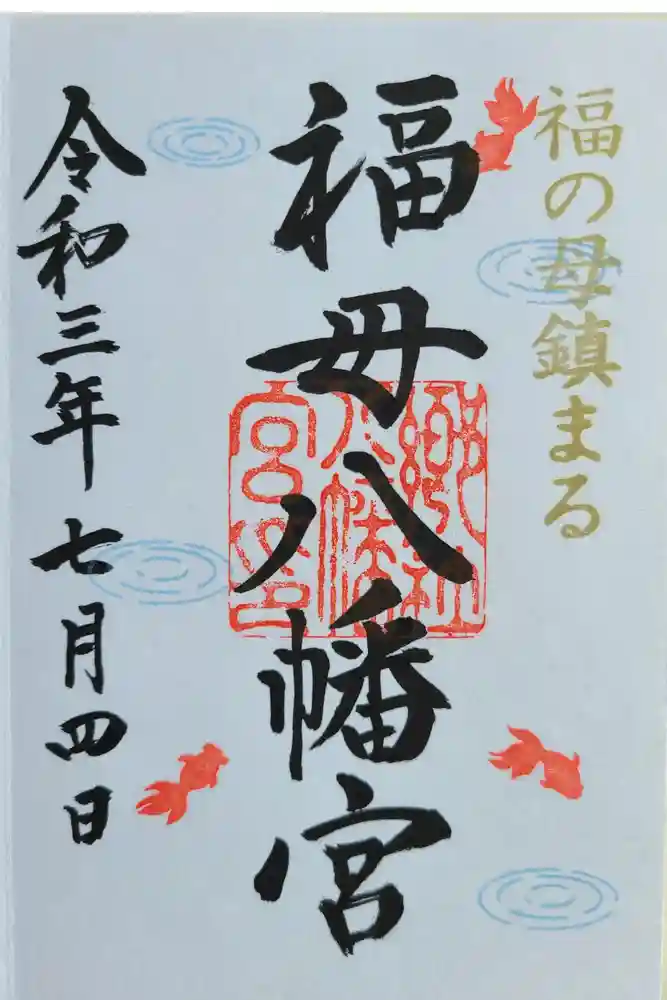 福の母鎮まる
福母八幡宮
郷社八幡宮印
令和三年七月四日